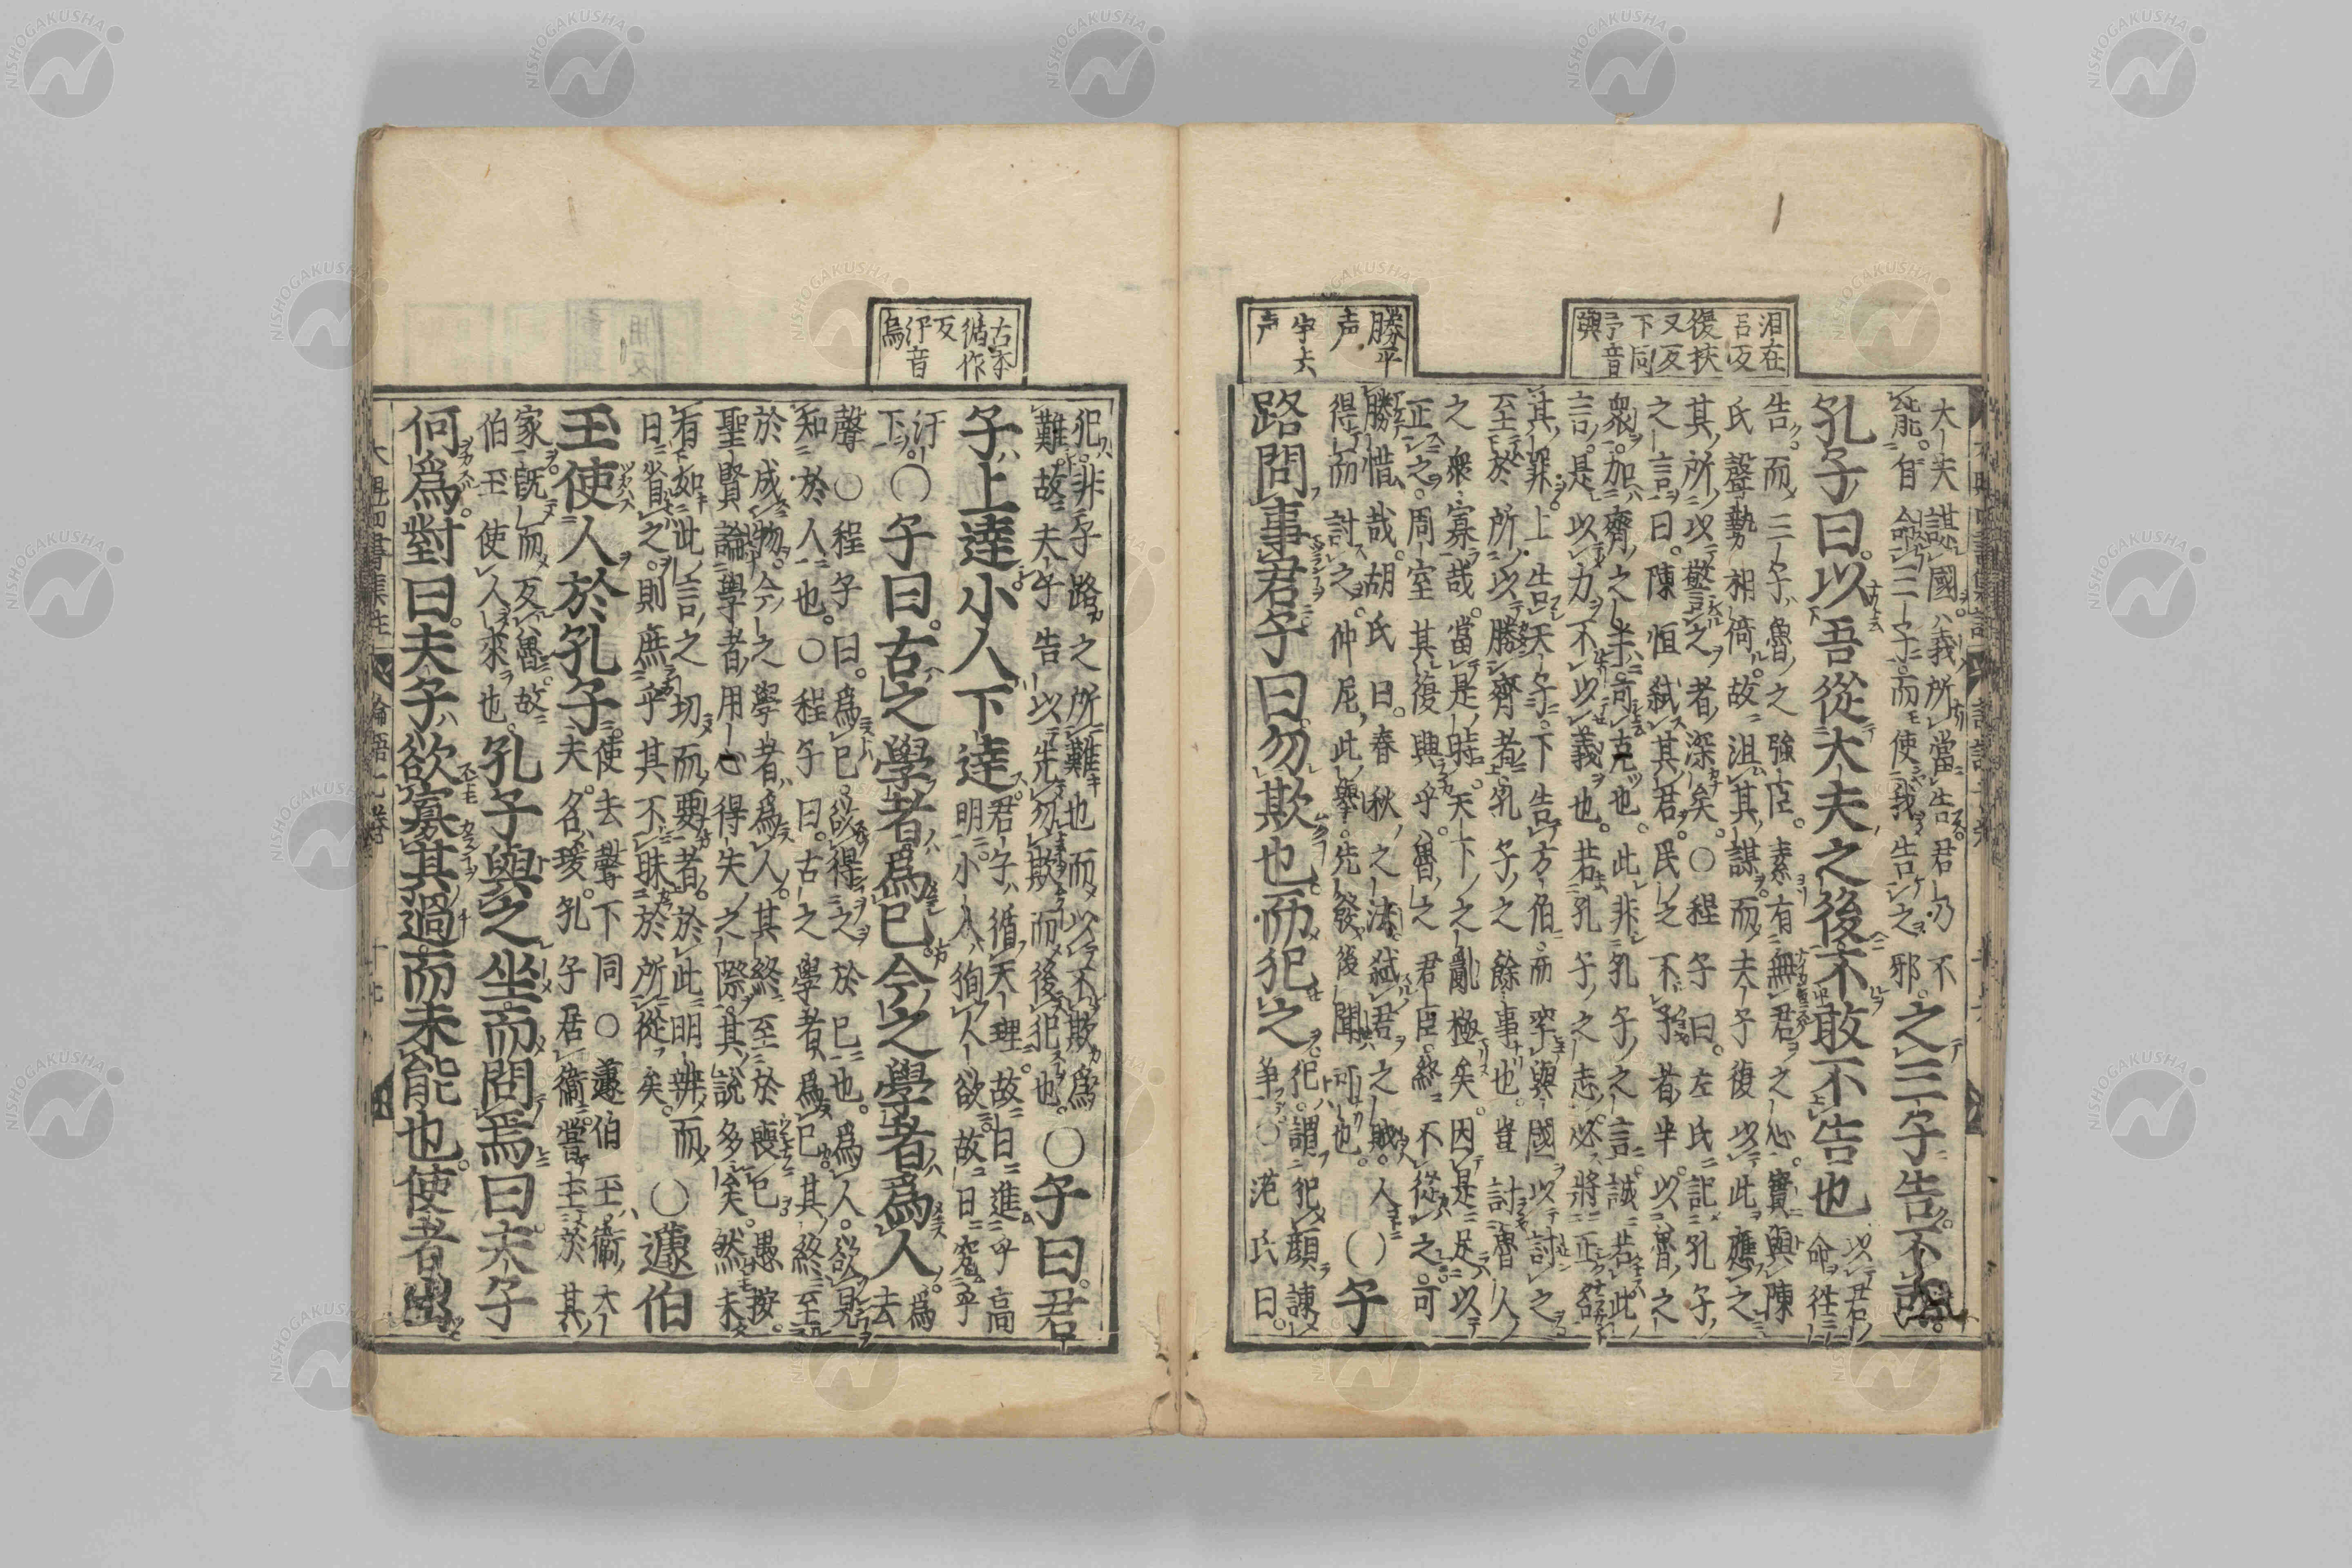 沮在
呂反
復扶
又反
下同
予音
與
勝平
声
声
大夫謀國義所當告君乃不
能自命三子而使我告之邪
之三子告不可
孔子曰以吾從大夫之後不敢不告也
以君
命往三
告而三子魯之強臣素有無君之心實與陳
氏聲勢相倚故沮其謀而夫子復以此應之
其所以警之者深矣○程子曰左氏記孔子
之言曰陳恒弑其君民之不予者半以魯之
衆加齊之半可克也此非孔子之言誠若此
言是以力不以義也若孔子之志必將正名
其罪上告天子下告方伯而率與國以討之
至於所以勝齊者孔子之餘事也豈計魯人
之衆寡哉當是時天下之亂極矣因是足以
正之周室其復興乎魯之君臣終不從之可
勝惜哉胡氏曰春秋之法弑君之賊人
得而討之仲尼此舉先發後聞可也
○子
路問事君子曰勿欺也而犯之
犯謂犯顔諫
爭○范氏曰
古本
循作
反
汙音
烏
犯非子路之所難也而以不欺爲
難故夫子告以先勿欺而後犯也
○子曰君
子上達小人下達
君子循天理故日進乎高
明小人徇人欲故日究乎
汙
下
○子曰古之學者爲己今之學者爲人
爲
去
聲○程子曰爲己欲得之於己也爲人欲見
知於人也○程子曰古之學者爲己其終至
於成物今之學者爲人其終至於喪己愚按
聖賢論學者用心得失之際其說多矣然未
有如此言之切而要者於此明辨而
日省之則庶乎其不昧於所從矣
○蘧伯
玉使人於孔子
使去聲下同○蘧伯玉衞大
夫名瑗孔子居衞嘗主於其
家既而反魯故
伯玉使人來也
孔子與之坐而問焉曰夫子
何爲對曰夫子欲寡其過而未能也使者出
論語七卷
十七
NISHOGAKUSHA